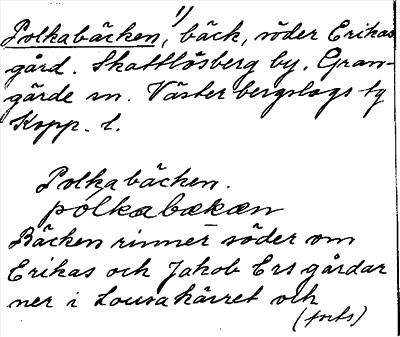 1/
Polkabäcken, bäck, söder Erikas
gård. Skattlösberg by. Gran-
gärde sn. Väster bergslags tg
Kopp. l.
Polkabäcken.
pólkabækæn
Bäcken rinner söder om
Erikas och Jakob Ers gårdar
ner i Lousakärret och
(forts)